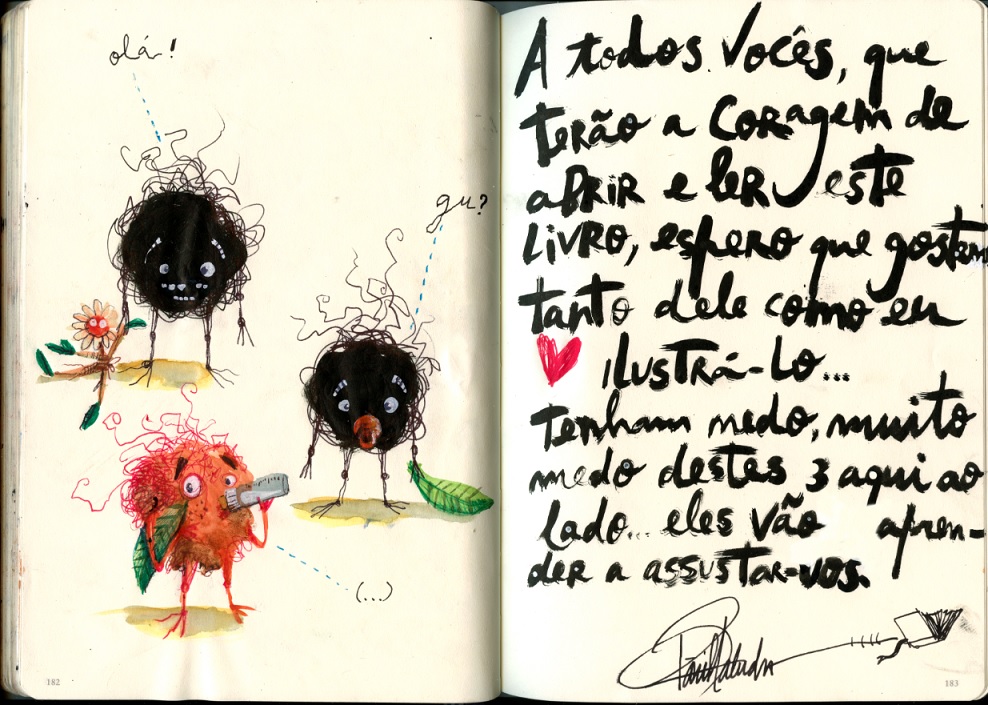 olá!
gu?
(...)
182
A todos vocês, que
terão a coragem de
abrir e ler este
livro, espero que gostem
tanto dele como eu
ilustrá-lo...
Tenham medo, muito
medo destes 3 aqui ao
lado... eles vão apren-
der a assustar-vos.
183